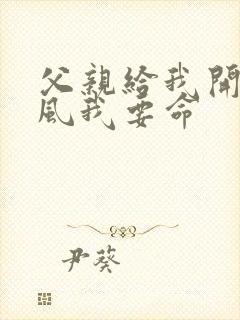 父親給我開
風我要命
尹葵